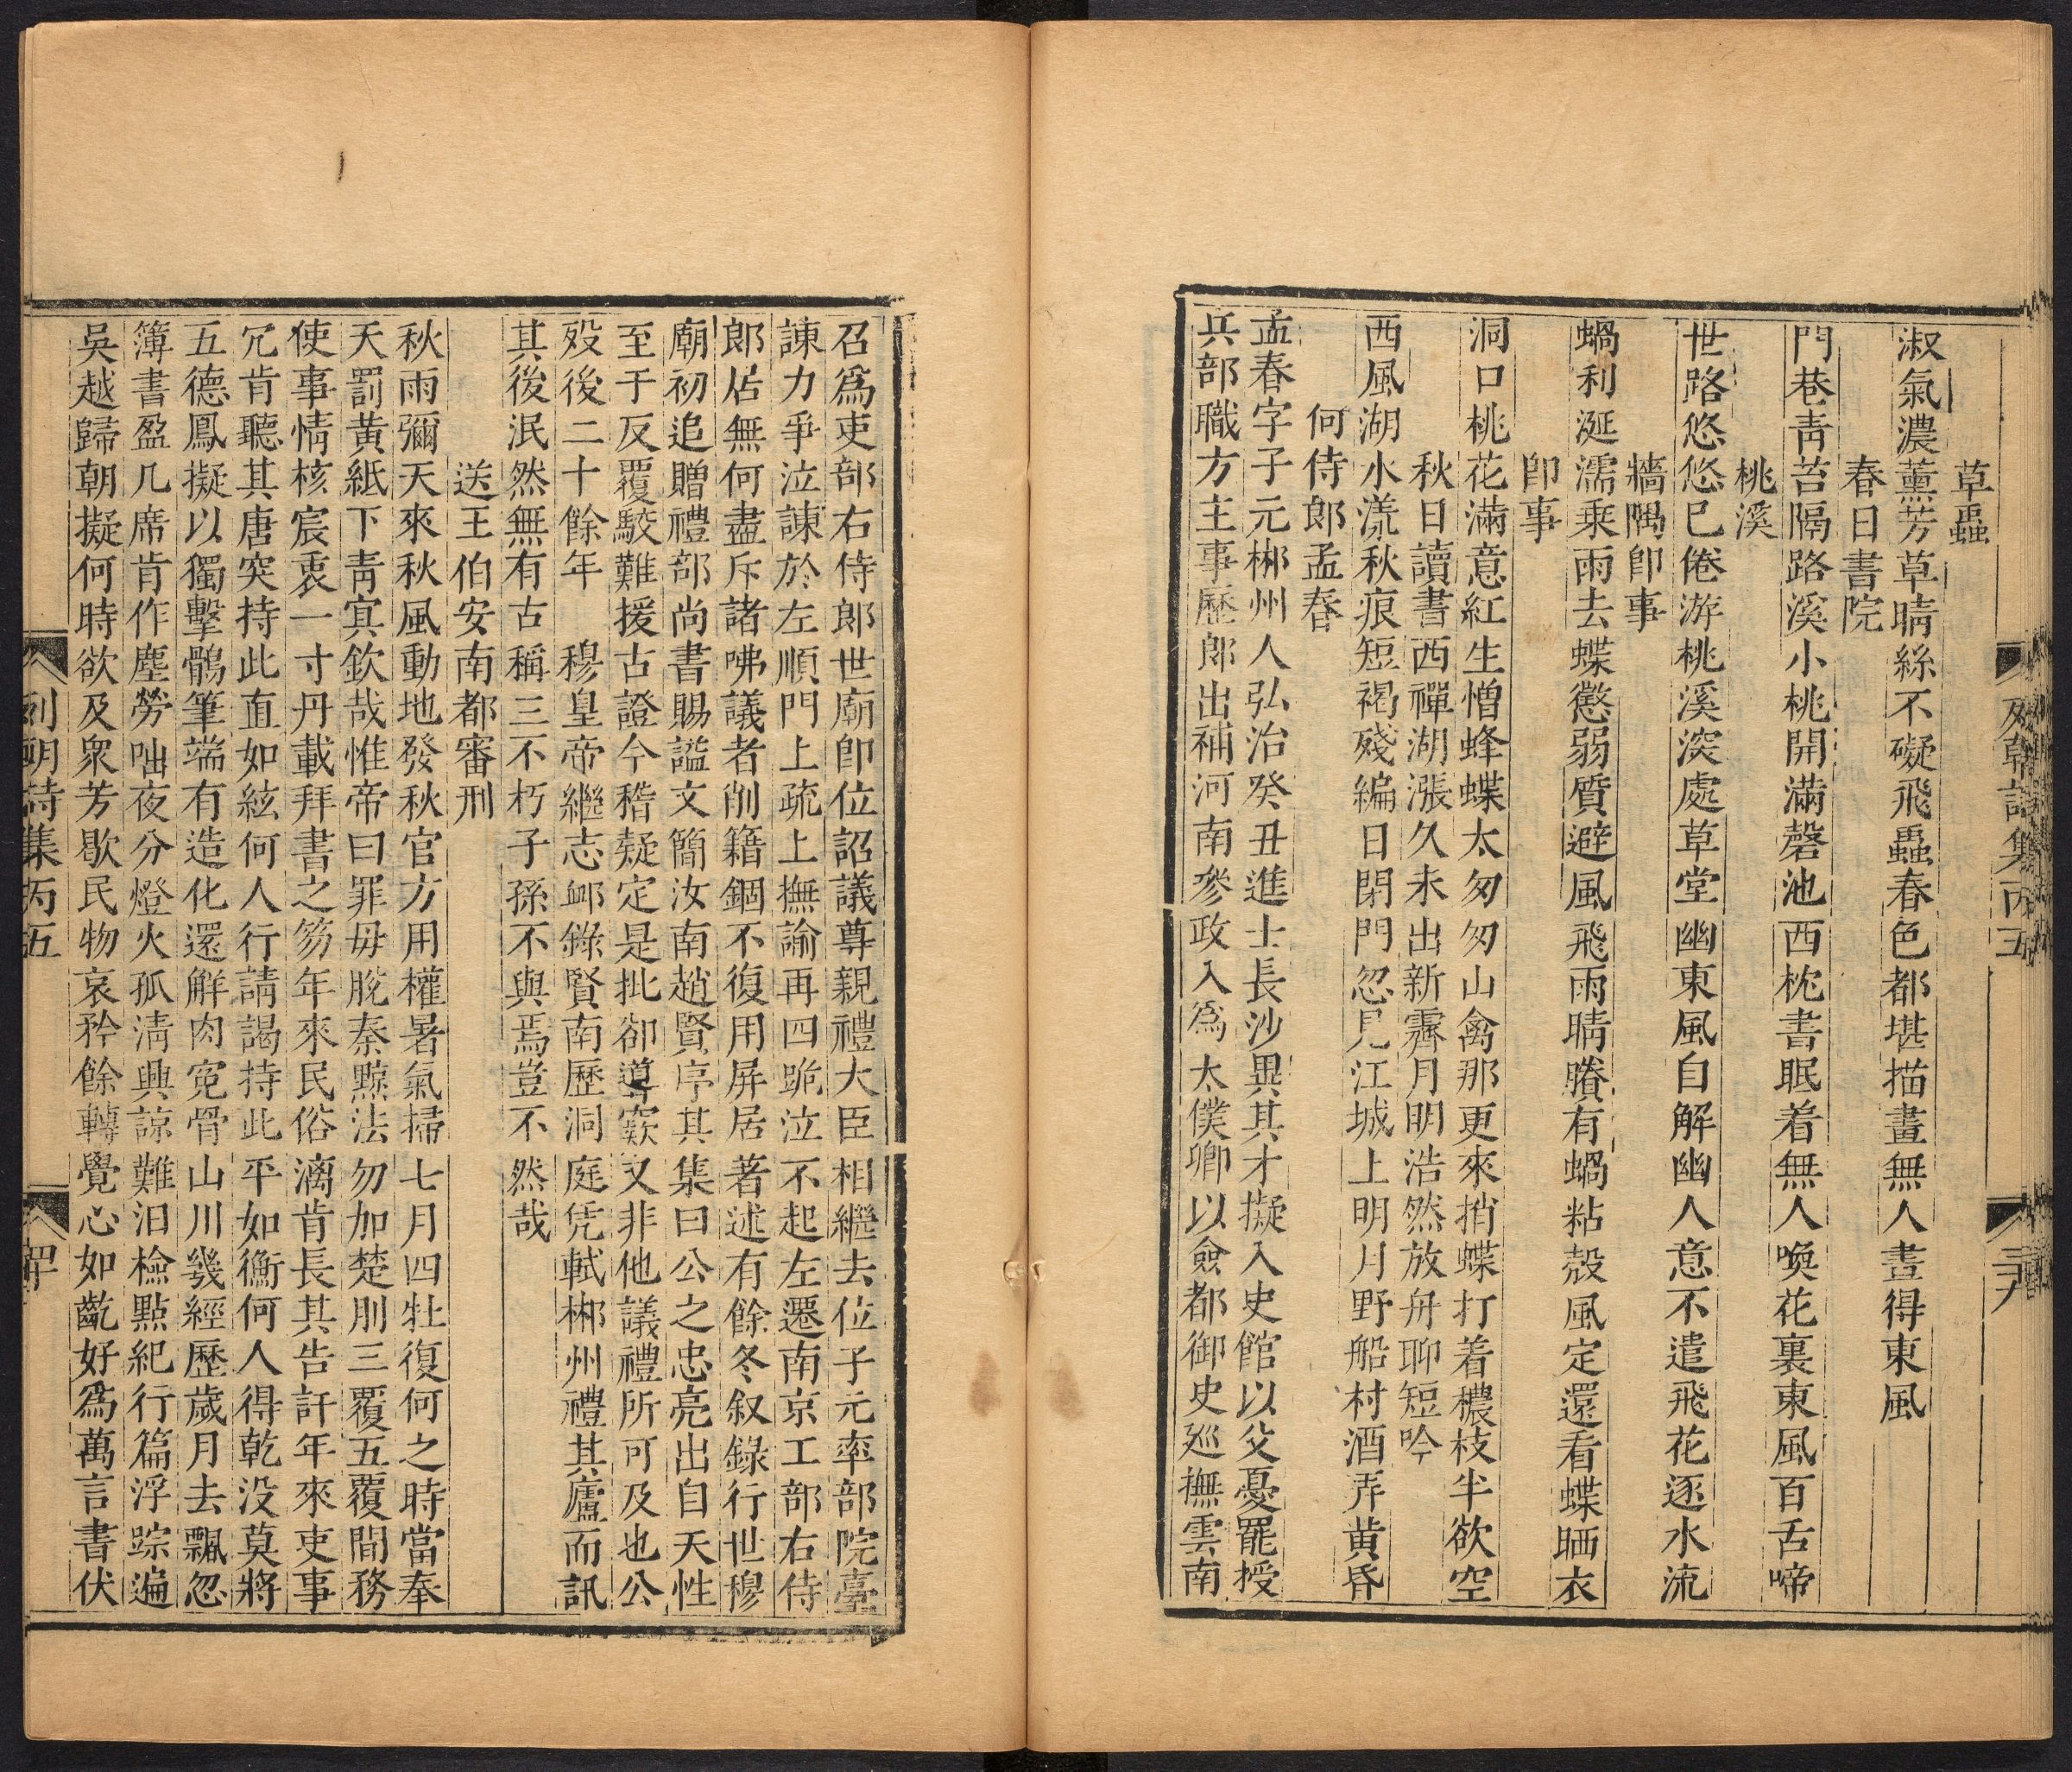 草蟲
淑氣濃薰芳草晴絲不礙飛蟲春色都堪描畫無人畫得東風
春日書院
門巷靑苔隔路溪小桃開滿磬池西枕書眠着無人喚花裏東風百舌啼
桃溪
世路悠悠已倦游桃溪深處草堂幽東風自解幽人意不遣飛花逐水流
牆隅卽事
蝸利涎濡乘雨去蝶懲弱質避風飛雨晴賸有蝸粘殼風定還看蝶晒衣
卽事
洞口桃花滿意紅生憎蜂蝶太匆匆山禽那更來捎蝶打着穠枝半欲空
秋日讀書西禪湖漲久未出新霽月明浩然放舟聊短吟
西風湖水漾秋痕短褐殘編日閉門忽見江城上明月野船村酒弄黃昏
何侍郎孟春
孟春字子元郴州人弘治癸丑進士長沙異其才擬入史館以父憂罷授
兵部職方主事歷郎出補河南參政入爲太僕卿以僉都御史廵撫雲南
召爲吏部右侍郎世廟卽位詔議尊親禮大臣相繼去位子元率部院臺
諫力爭泣諫於左順門上疏上撫諭再四跪泣不起左遷南京工部右侍
郎居無何盡斥諸咈議者削籍錮不復用屏居著述有餘冬叙錄行世穆
廟初追贈禮部尚書賜謚文簡汝南趙賢序其集曰公之忠亮出自天性
至于反覆駮難援古證今稽疑定是批卻導窾又非他議禮所可及也公
歿後二十餘年　穆皇帝繼志䘏錄賢南歷洞庭凭軾郴州禮其廬而訊
其後泯然無有古稱三不朽子孫不與焉豈不然哉
送王伯安南都審刑
秋雨彌天來秋風動地發秋官方用權暑氣掃七月四牡復何之時當奉
天罰黃紙下靑冥欽哉惟帝曰罪毋脫秦黥法勿加楚刖三覆五覆間務
使事情核宸衷一寸丹載拜書之笏年來民俗漓肯長其告訐年來吏事
冗肯聽其唐突持此直如絃何人行請謁持此平如衡何人得乾没莫將
五德鳳擬以獨擊鶻筆端有造化還解肉寃骨山川幾經歷歲月去飄忽
簿書盈几席肯作塵勞咄夜分燈火孤淸興諒難汩檢點紀行篇浮踪遍
吳越歸朝擬何時欲及衆芳歇民物哀矜餘轉覺心如齕好爲萬言書伏
列朝詩集丙五
四十